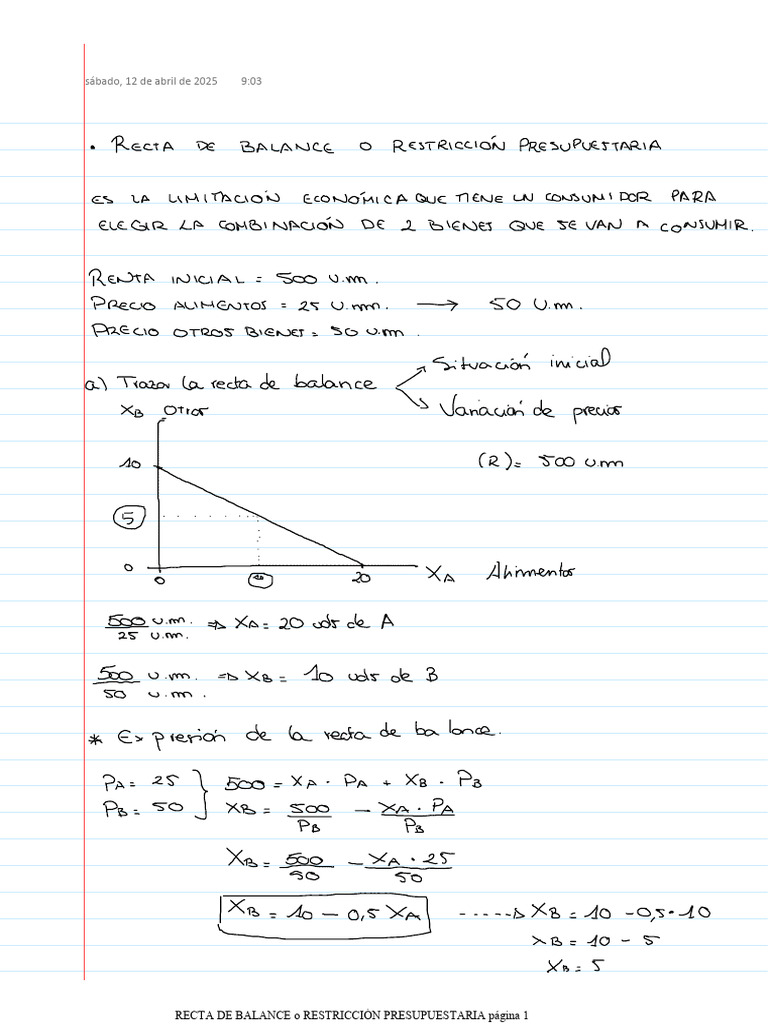 sábado, 12 de abril de 2025 9:03
• RECTA DE BALANCE O RESTRICCIÓN PRESUPUESTARIA
ES LA LIMITACIÓN ECONÓMICA QUE TIENE UN CONSUMIDOR PARA
ELEGIR LA COMBINACIÓN DE 2 BIENES QUE SE VAN A CONSUMIR.
RENTA INICIAL = 500 U.m.
PRECIO ALIMENTOS = 25 U.m. → 50 U.m.
PRECIO OTROS BIENES = 50 U.m.
a) Trazar la recta de balance
Situación inicial
Variación de precios
XB Otros
(R) = 500 U.m
10
5
0
0 10 20 XA Alimentos
500 u.m. / 25 u.m. ⇒ XA = 20 uds de A
500 u.m. / 50 u.m. ⇒ XB = 10 uds de B
* Expresión de la recta de balance.
PA = 25 } 500 = XA · PA + XB · PB
PB = 50 XB = 500 / PB - XA · PA / PB
XB = 500 / 50 - XA · 25 / 50
XB = 10 - 0,5 XA -----⇒ XB = 10 - 0,5 · 10
XB = 10 - 5
XB = 5
RECTA DE BALANCE o RESTRICCIÓN PRESUPUESTARIA página 1